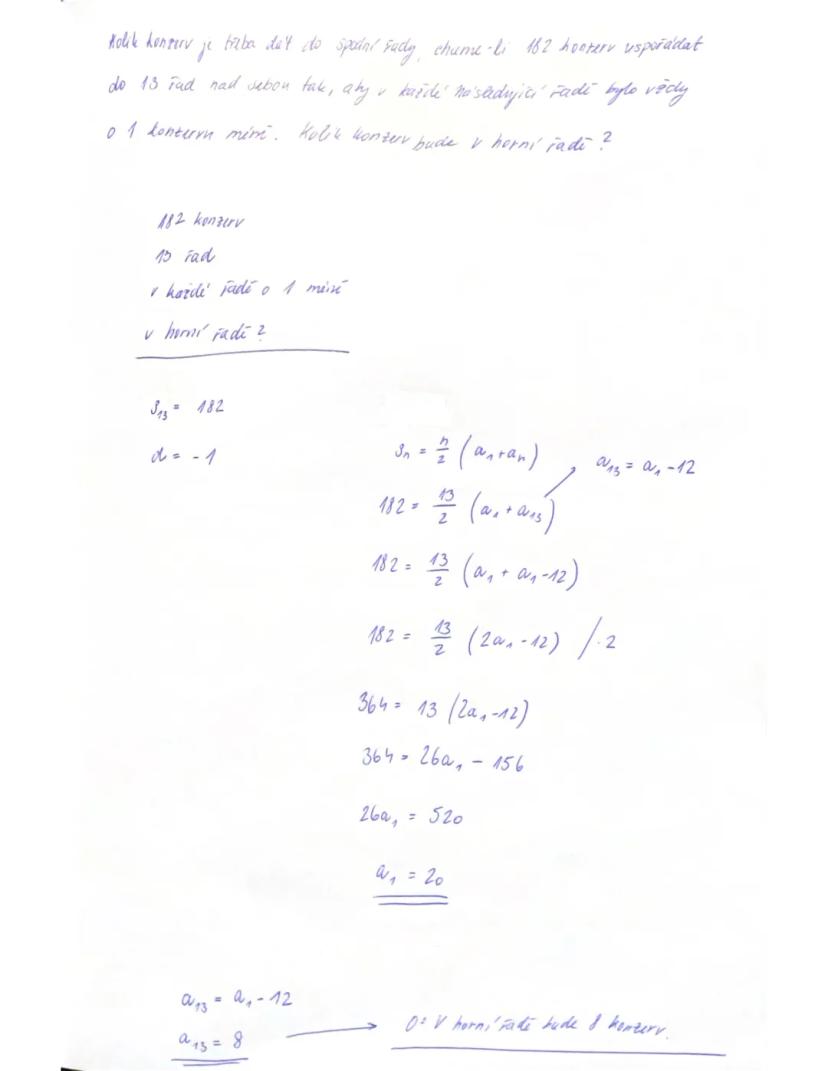 Kolik konzerv je třeba dát do spodní řady, chceme-li 182 konzerv uspořádat
do 13 řad nad sebou tak, aby v každé následující řadě bylo vždy
o 1 konzervu méně. Kolik konzerv bude v horní řadě?
182 konzerv
13 řad
v každé řadě o 1 méně
v horní řadě?
S₁₃ = 182
d = -1
Sₙ = n/2 (a₁+aₙ)
a₁₃ = a₁ -12
182 = 13/2 (a₁ + a₁₃)
182 = 13/2 (a₁ + a₁ -12)
182 = 13/2 (2a₁ -12) /·2
364 = 13 (2a₁ -12)
364 = 26a₁ - 156
26a₁ = 520
a₁ = 20
a₁₃ = a₁ - 12
a₁₃ = 8
O: V horní řadě bude 8 konzerv.